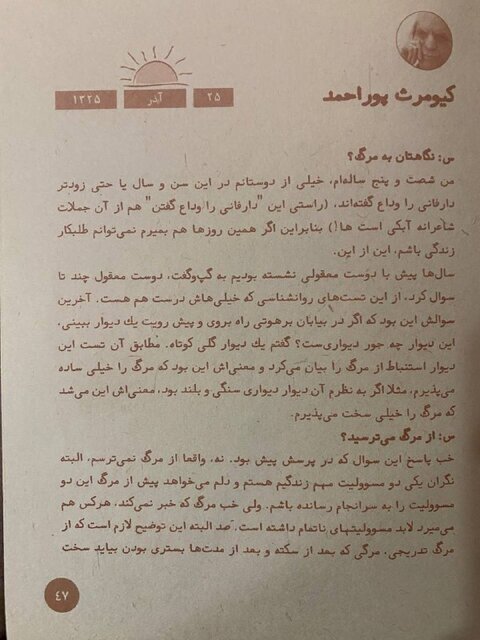 کیومرث پوراحمد
۲۵ آذر ۱۳۲۵
س: نگاهتان به مرگ؟
من شصت و پنج ساله‌ام، خیلی از دوستانم در این سن و سال یا حتی زودتر
دارفانی را وداع گفته‌اند، (راستی این "دارفانی را وداع گفتن" هم از آن جملات
شاعرانه آبکی است ها!) بنابراین اگر همین روزها هم بمیرم نمی‌توانم طلبکار
زندگی باشم، این از این.
سال‌ها پیش با دوست معقولی نشسته بودیم به گپ‌وگفت، دوست معقول چند تا
سوال کرد، از این تست‌های روانشناسی که خیلی‌هاش درست هم هست. آخرین
سوالش این بود که اگر در بیابان برهوتی راه بروی و پیش رویت یك دیوار ببینی،
این دیوار چه جور دیواری‌ست؟ گفتم یك دیوار گلی کوتاه. مطابق آن تست این
دیوار استنباط از مرگ را بیان می‌کرد و معنی‌اش این بود که مرگ را خیلی ساده
می‌پذیرم، مثلا اگر به نظرم آن دیوار دیواری سنگی و بلند بود، معنی‌اش این می‌شد
که مرگ را خیلی سخت می‌پذیرم.
س: از مرگ می‌ترسید؟
خب پاسخ این سوال که در پرسش پیش بود. نه، واقعا از مرگ نمی‌ترسم، البته
نگران یکی دو مسوولیت مهم زندگیم هستم و دلم می‌خواهد پیش از مرگ این دو
مسوولیت را به سرانجام رسانده باشم. ولی خب مرگ که خبر نمی‌کند، هرکس هم
می‌میرد لابد مسوولیتهای ناتمام داشته است. البته این توضیح لازم است که از
مرگ تدریجی، مرگی که بعد از سکته و بعد از مدت‌ها بستری بودن بیاید سخت
۴۷